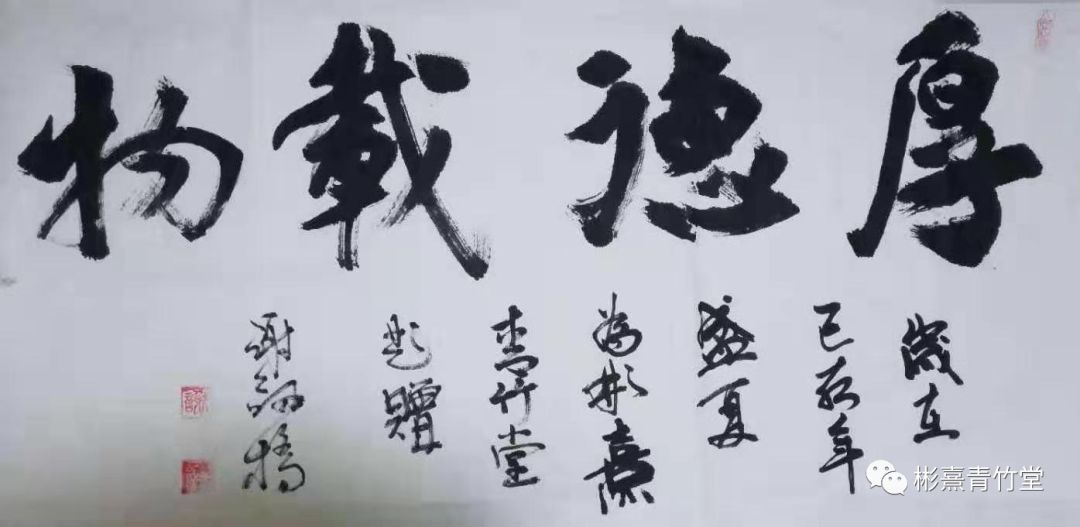 厚德載物
歲在
己亥年
盛夏
為彬熹
青竹堂
題贈
彬熹青竹堂